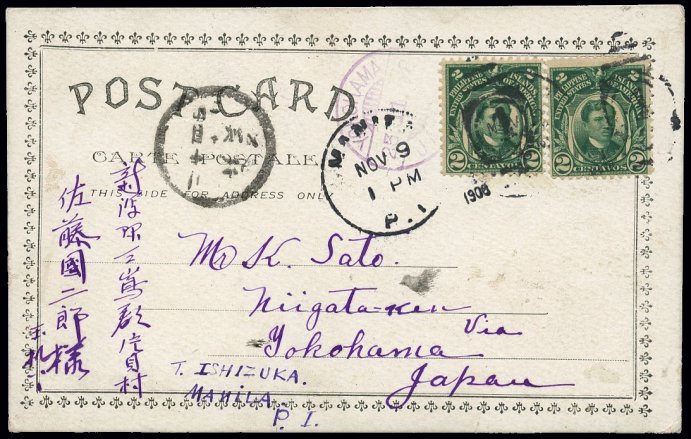 POST CARD
CARTE POSTALE
THIS SIDE FOR ADDRESS ONL
2 PHILIPPINE ISLANDS 2
UNITED STATES
2 CENTAVOS 2
MANILA
NOV 9
1 PM
P. I
1908
Mr K. Sato.
Niigata-ken
Via
Yokohama
Japan
T. ISHIZUKA.
MANILA
P. I.
新潟県三嶌郡片貝村
佐藤國二郎様